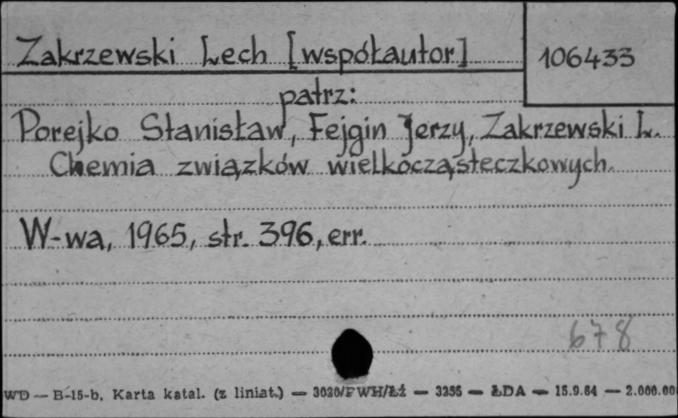 Zakrzewski Lech [współautor]
106433
patrz:
Porejko Stanisław, Fejgin Jerzy, Zakrzewski L.
Chemia związków wielkocząsteczkowych.
W-wa, 1965, str. 396, err.
678
WD — B-15-b. Karta katal. (z liniat.) — 3020/PWH/Łź — 3255 — ŁDA — 15.9.64 — 2.000.00